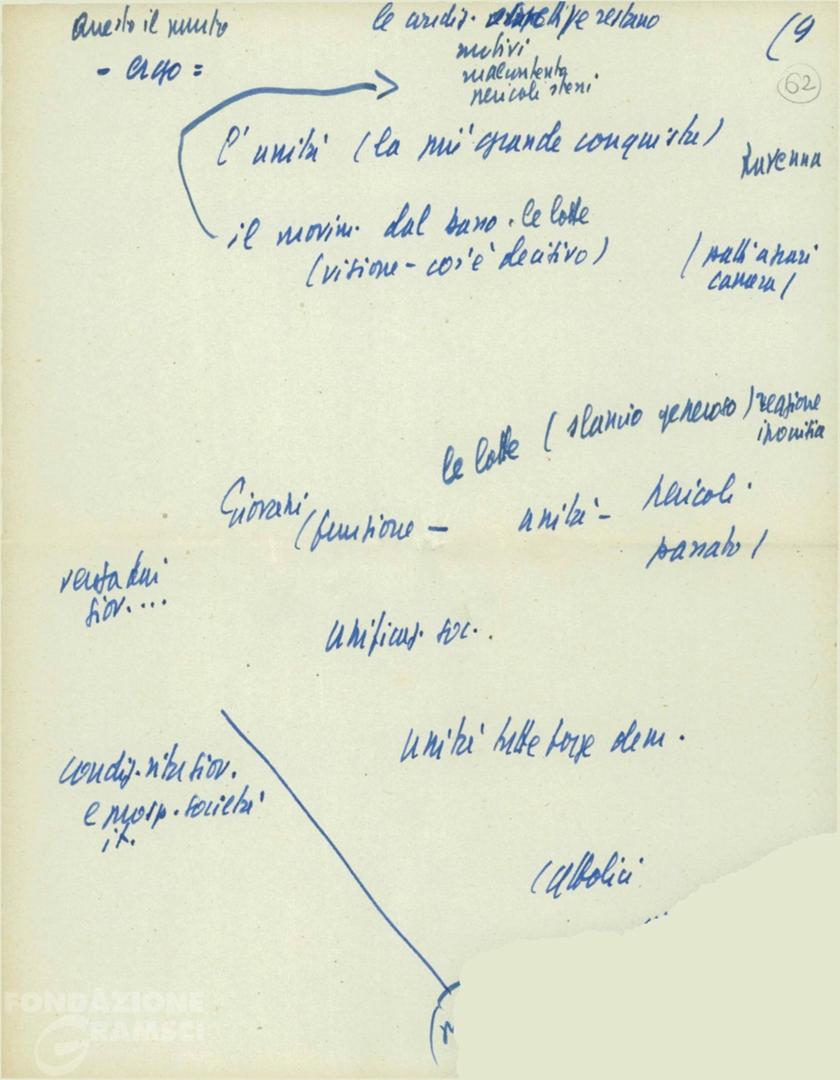 Questo il punto
- ergo =
le condiz. obiettive restano
motivi
malcontento
pericoli stessi
(9
62
L'unità (la più grande conquista)
Ravenna
il movim. dal basso. le lotte
(visione - cos'è decisivo)
(patti agrari
camera)
le lotte (slancio generoso)
reazione
Giovani
(funzione -
unità -
pericoli
passato)
giov....
unificaz. soc.
unità tutte forze dem.
condiz. vita giov.
e prosp. società
it.
(cattolici
FONDAZIONE
GRAMSCI